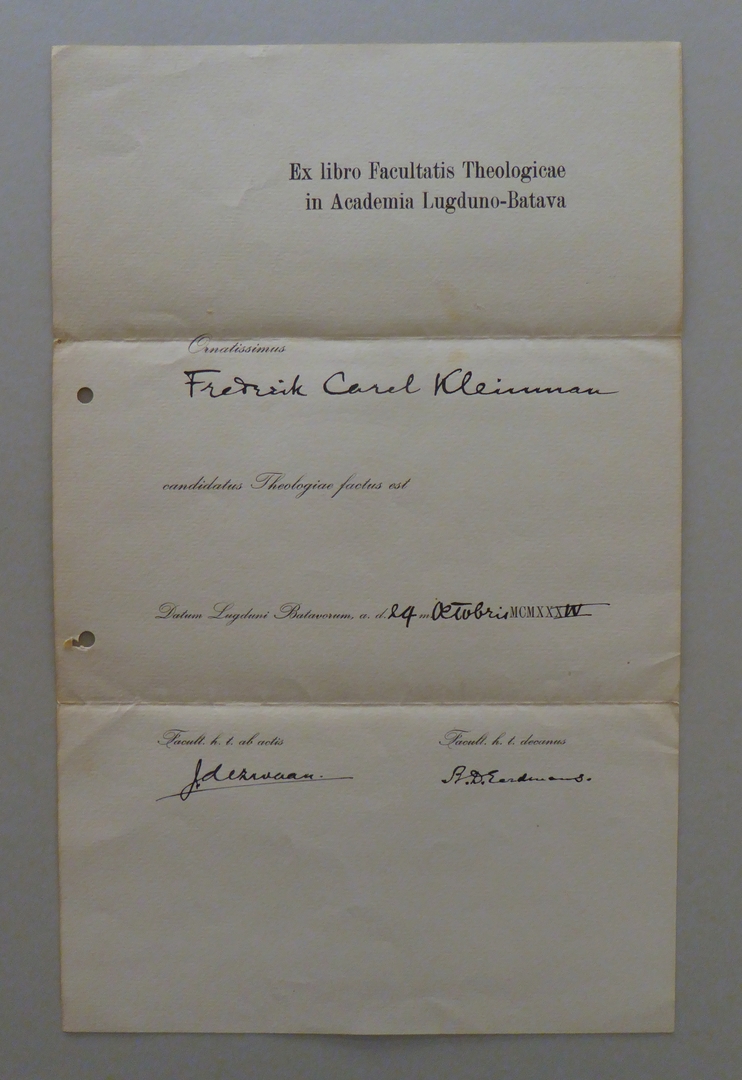 Ex libro Facultatis Theologicae
in Academia Lugduno-Batava
Ornatissimus
Frederik Carel Kleinman
candidatus Theologiae factus est
Datum Lugduni Batavorum, a. d. 24 m. Octobris MCMXXXIV
Facult. h. t. ab actis
Facult. h. t. decanus
J. de Zwaan.
B.D. Eerdmans.